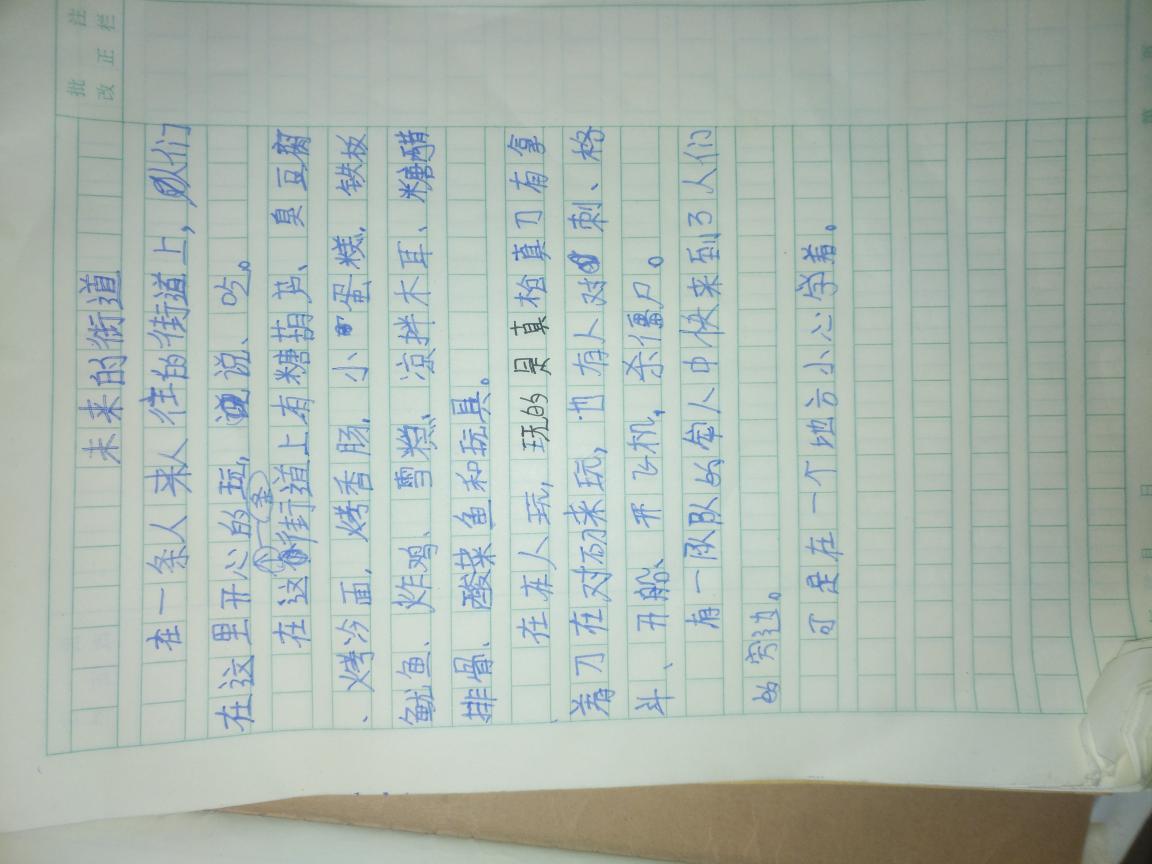 批注
改正栏
未来的街道
在一条人来人往的街道上，人们
在这里开心的玩，说、吃。
一条
在这街道上有糖葫芦、臭豆腐
、烤冷面，烤香肠，小蛋糕，铁板
鱿鱼、炸鸡、雪糕、凉拌木耳、糖醋
排骨、酸菜鱼和玩具。
在有人玩，玩的是真枪真刀有拿
着刀在对砍来玩，也有人对刺、格
斗、开船、开飞机，杀僵尸。
有一队队的军人中快来到了人们
的旁边。
可是在一个地方小心学着。